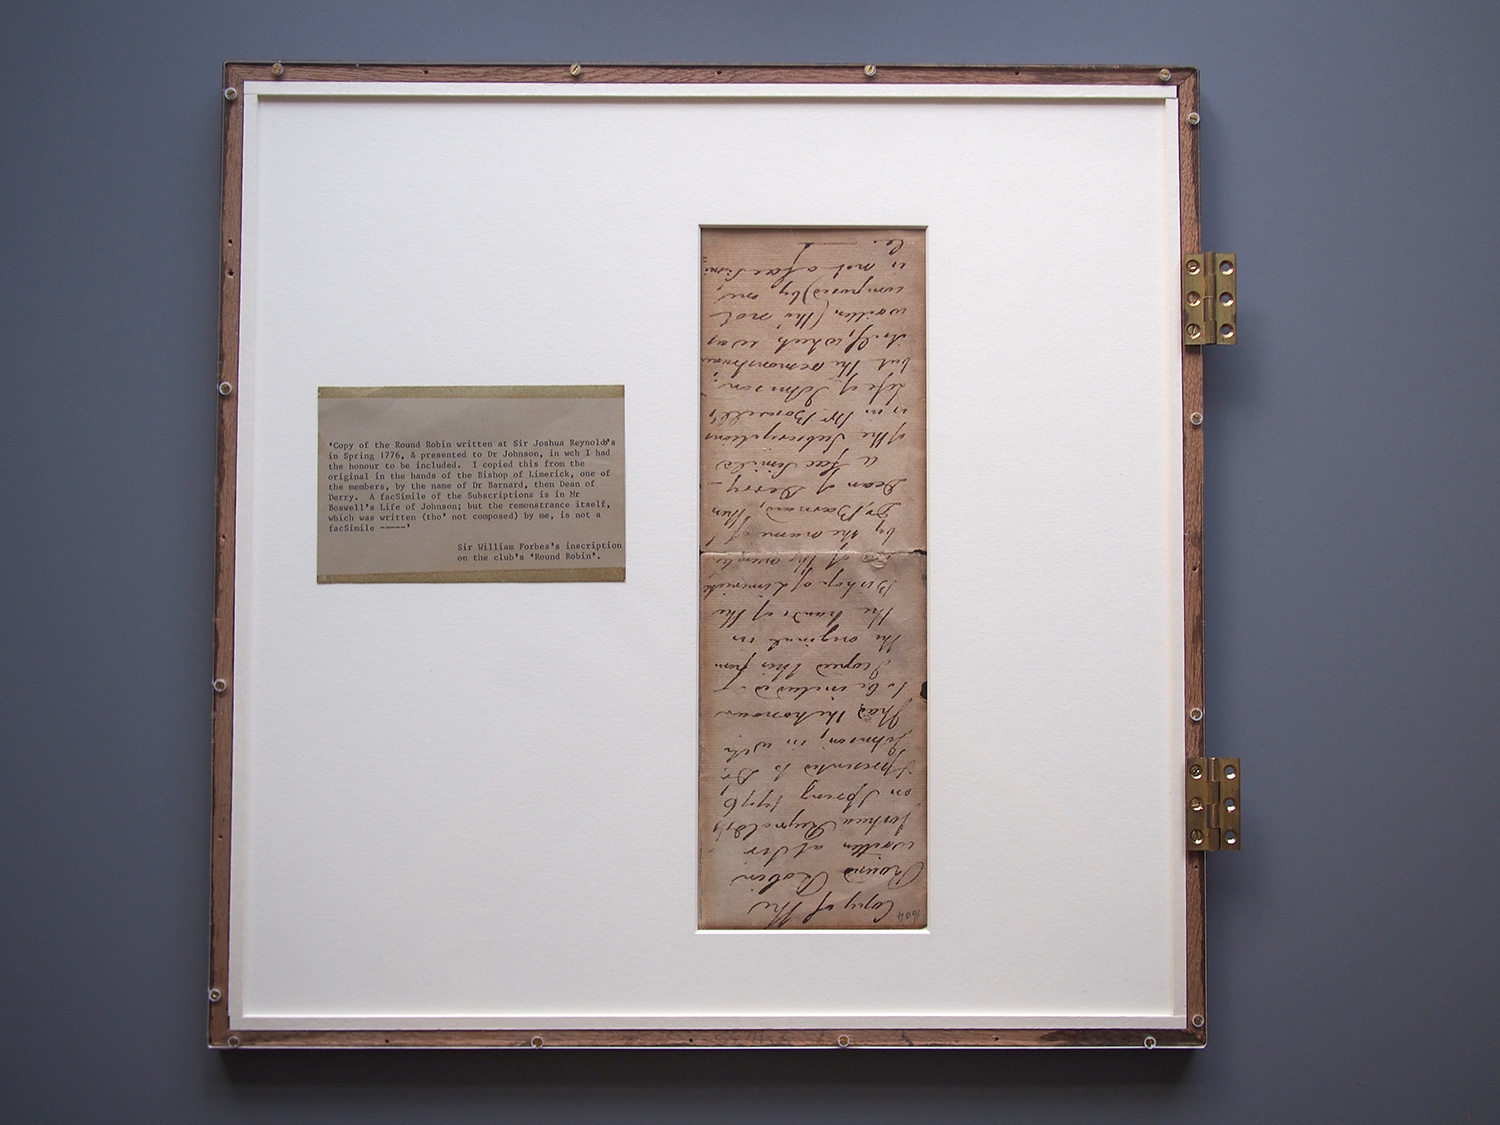 'Copy of the Round Robin written at Sir Joshua Reynolds's
in Spring 1776, & presented to Dr Johnson, in wch I had
the honour to be included.  I copied this from the
original in the hands of the Bishop of Limerick, one of
the members, by the name of Dr Barnard, then Dean of
Derry.  A facSimile of the Subscriptions is in Mr
Boswell's Life of Johnson; but the remonstrance itself,
which was written (tho' not composed) by me, is not a
facSimile -----'
Sir William Forbes's inscription
on the club's 'Round Robin'.
1604
Copy of the
Round Robin
written at Sir
Joshua Reynolds's
in Spring 1776,
& presented to Dr
Johnson, in wch
I had the honour
to be included. I
copied this from
the original in
the hands of the
Bishop of Limerick
one of the members
by the name of
Dr Barnard, then
Dean of Derry –
a fac Simile
of the Subscriptions
is in Mr Boswell's
Life of Johnson;
but the remonstrance
itself, which was
written (tho' not
composed) by me,
is not a fac Simi=
le. —